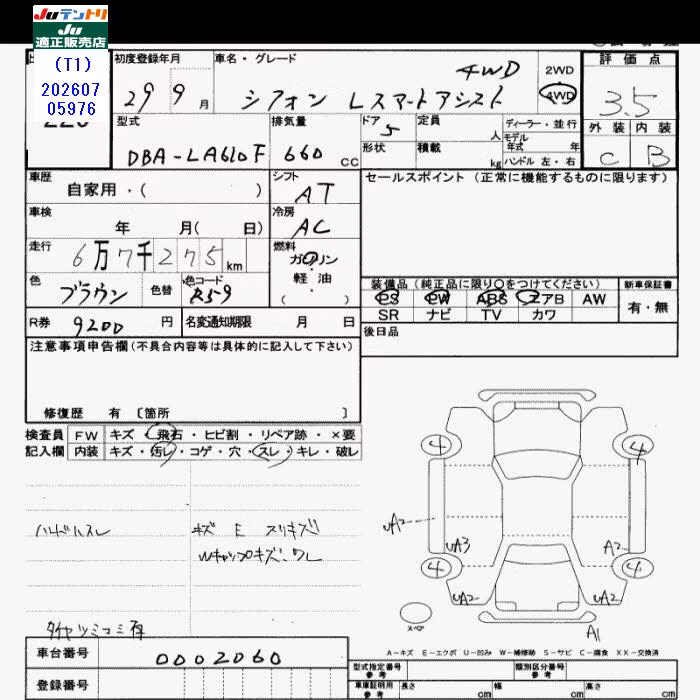 JUテントリ
JU
適正販売店
(T1)
202607
05976
初度登録年月
29 9月
車名・グレード
4WD
シフォン Lスマートアシスト
2WD
4WD
評価点
3.5
外装 内装
C B
型式
DBA-LA610F
排気量
660 cc
ドア
5
定員
人
形状
積載
kg
ディーラー・並行
モデル
年式 年
ハンドル 左・右
車歴
自家用・( )
シフト
AT
セールスポイント (正常に機能するものに限ります)
車検
年 月( 日)
冷房
AC
走行
6万7千275km
燃料
ガソリン
軽油
( )
色
ブラウン
色替
色コード
R59
装備品 (純正品に限り○をつけてください)
PS PW ABS エアB AW
SR ナビ TV カワ
新車保証書
有・無
R券
9200円
名変通知期限 月 日
後日品
注意事項申告欄(不具合内容等は具体的に記入して下さい)
修復歴 有 〔箇所 〕
検査員
記入欄
FW キズ・飛石・ヒビ割・リペア跡・×要
内装 キズ・汚レ・コゲ・穴・スレ・キレ・破レ
ハンドルスレ
キズ E スリキズ
Wキャップキズ、ワレ
タイヤツミコミ有
4 4
uA2
uA3 A2
4 4
uA2 uA2
スペア
A1
A-キズ E-エクボ U-凹み W-補修跡 S-サビ C-腐食 XX-交換済
車台番号
0002060
登録番号
型式指定番号
参考
類別区分番号
参考
車庫証明用
参考
長さ cm 幅 cm 高さ cm